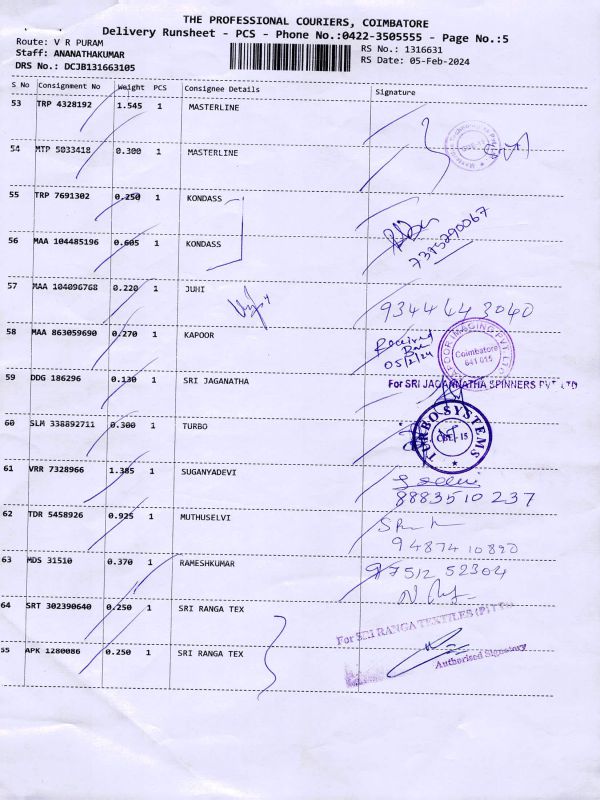 THE PROFESSIONAL COURIERS, COIMBATORE
Delivery Runsheet - PCS - Phone No.:0422-3505555 - Page No.:5
Route: V R PURAM
RS No.: 1316631
Staff: ANANATHAKUMAR
RS Date: 05-Feb-2024
DRS No.: DCJB131663105
S No Consignment No Weight PCS Consignee Details Signature
53 TRP 4328192 1.545 1 MASTERLINE
54 MTP 5033418 0.300 1 MASTERLINE
55 TRP 7691302 0.250 1 KONDASS
56 MAA 104485196 0.605 1 KONDASS
7395290067
57 MAA 104096768 0.220 1 JUHI
9344643040
58 MAA 863059690 0.270 1 KAPOOR
Received
05/2/24
KAPOOR IMAGING PVT. LTD.
Coimbatore
641 015
59 DDG 186296 0.130 1 SRI JAGANATHA
For SRI JAGANNATHA SPINNERS PVT LTD
60 SLM 338892711 0.300 1 TURBO
TURBO SYSTEMS
CBE-15
61 VRR 7328966 1.385 1 SUGANYADEVI
8883510237
62 TDR 5458926 0.925 1 MUTHUSELVI
9487410890
63 MDS 31510 0.370 1 RAMESHKUMAR
97512 52304
64 SRT 302390640 0.250 1 SRI RANGA TEX
For SRI RANGA TEXTILES (P) LTD
65 APK 1280086 0.250 1 SRI RANGA TEX
Authorised Signatory